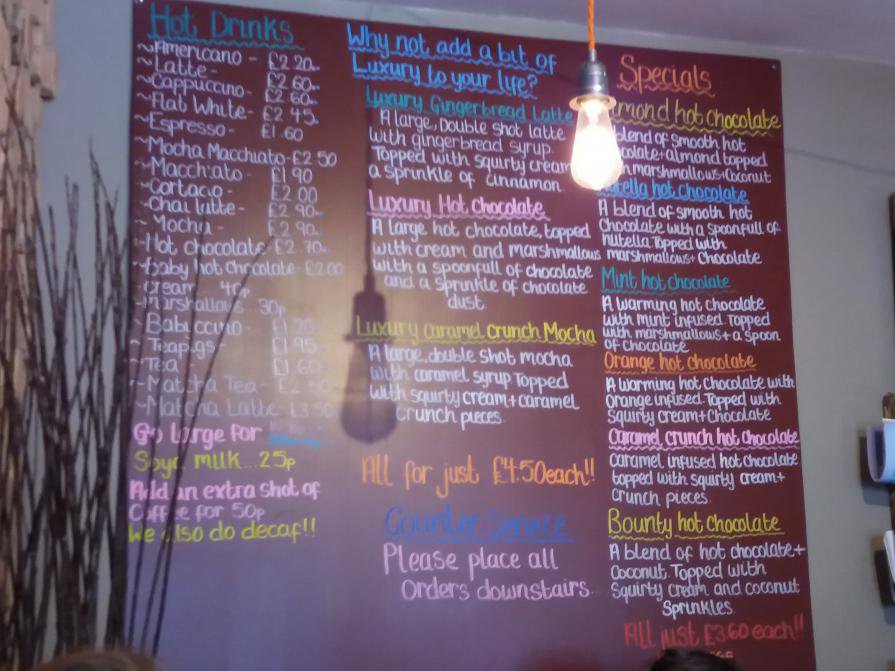 Hot Drinks
~Americano - £2 20
~Latte - £2 60
~Cappuccino - £2 60
~Flat White - £2 45
~Espresso - £1 60
~Mocha Macchiato - £2 50
~Macchiato £1 90
~Cortado £2 00
~Chai latte - £2 90
~Mocha - £2 90
~Hot chocolate £2 70
~baby hot chocolate - £2.00
cream 40p
marshallows 30p
~Babyccino £1 20
~Teapigs - £1 95
~Tea £1 60
~Matcha Tea - £2 50
~Matcha Latte - £3 50
Go large for
Soya milk...25p
Add an extra shot of
Coffee for 50p
We also do decaf!!
Why not add a bit of
Luxury to your life?
Luxury Gingerbread Latte
A large, Double shot latte
with gingerbread syrup.
Topped with squirty cream
a sprinkle of cinnamon
Luxury Hot chocolate
A large hot chocolate, topped
with cream and marshmallows
with a spoonfull of chocolate
and a sprinkle of chocolate
dust.
Luxury caramel crunch Mocha
A large, double shot mocha
with caramel syrup Topped
with squirty cream + caramel
crunch pieces.
All for just £4.50 each!!
Counter Service
Please place all
Orders downstairs...
Specials
mond hot chocolate
blend of smooth hot
colate + almond topped
marshmallows + Coconut
Nutella hot chocolate
A blend of smooth hot
Chocolate with a spoonful of
nutella. Topped with
marshmallows + Chocolate
Mint hot chocolate
A warming hot chocolate
with mint infused. Topped
with marshmallows + a spoon
of chocolate
Orange hot chocolate
A warming hot chocolate with
Orange infused. Topped with
Squirty cream + Chocolate
Caramel crunch hot chocolate
Caramel infused hot chocolate
topped with squirty cream +
Crunch pieces.
Bounty hot chocolate
A blend of hot chocolate +
Coconut. Topped with
Squirty cream and coconut
Sprinkles.
All just £3.60 each!!